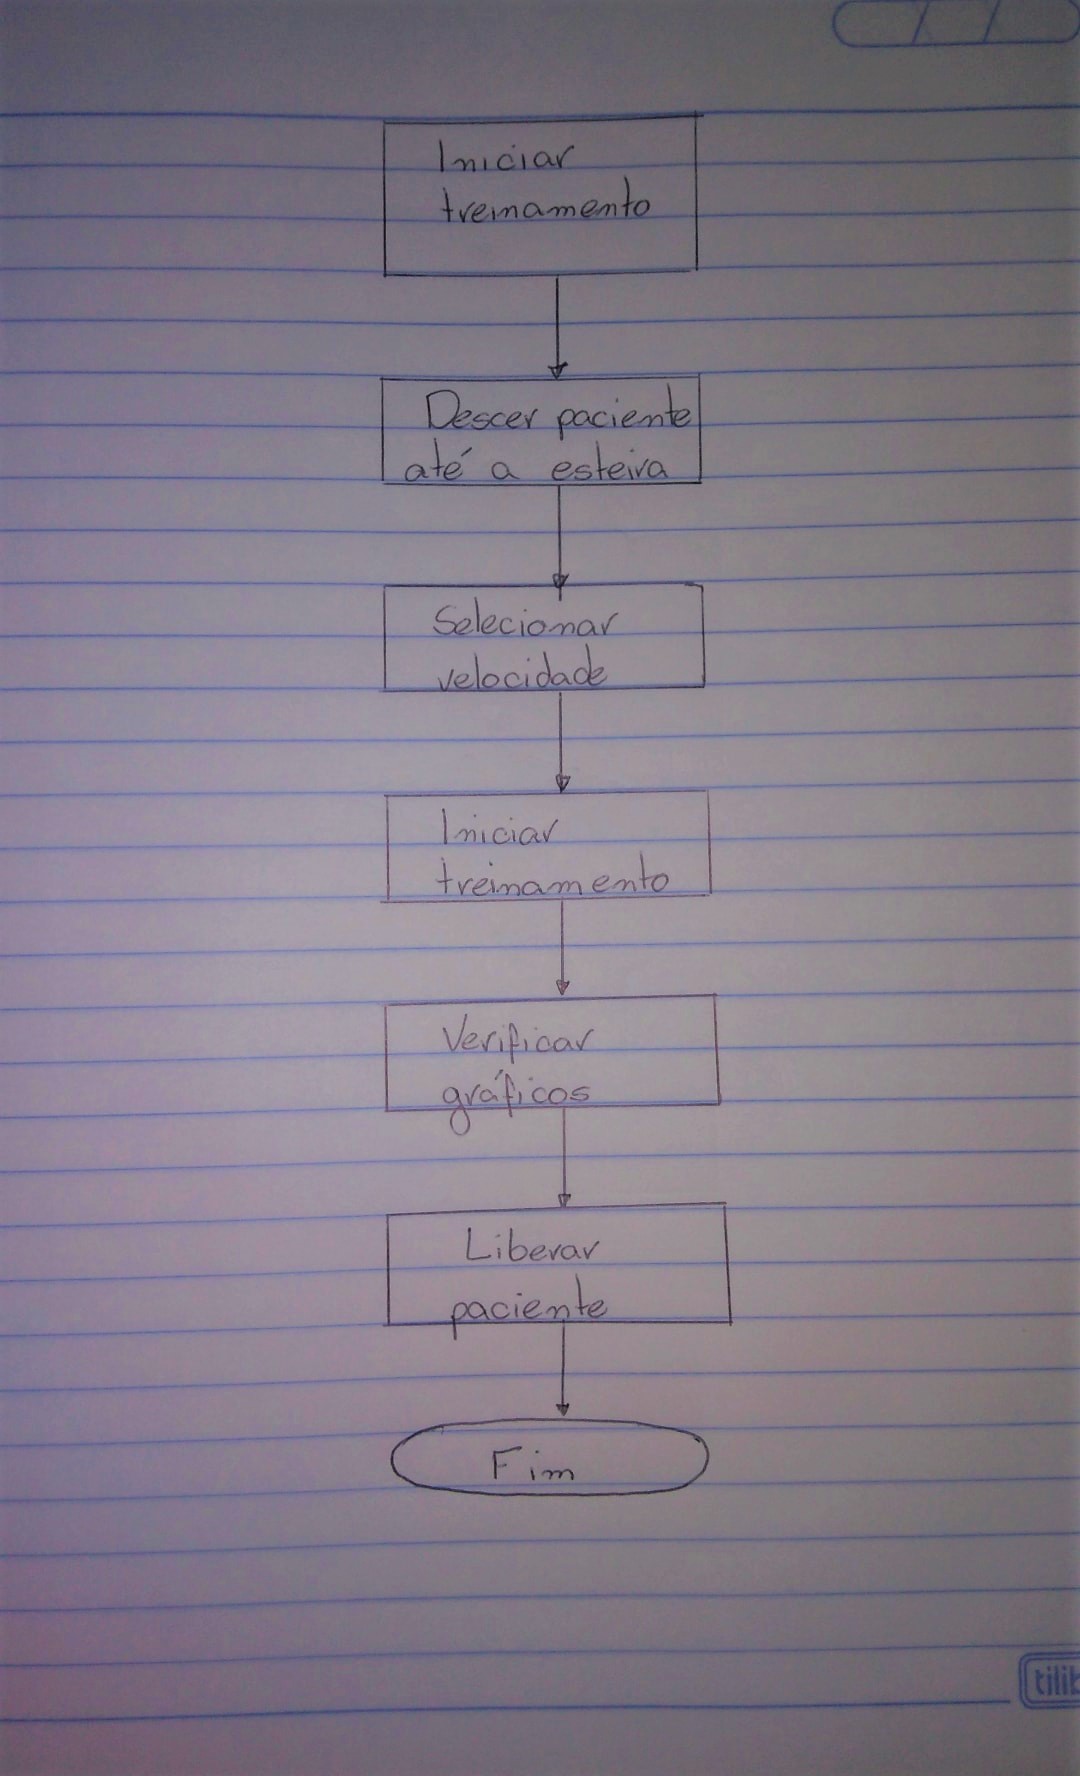 Iniciar
treinamento
Descer paciente
até a esteira
Selecionar
velocidade
Iniciar
treinamento
Verificar
gráficos
Liberar
paciente
Fim
tilib